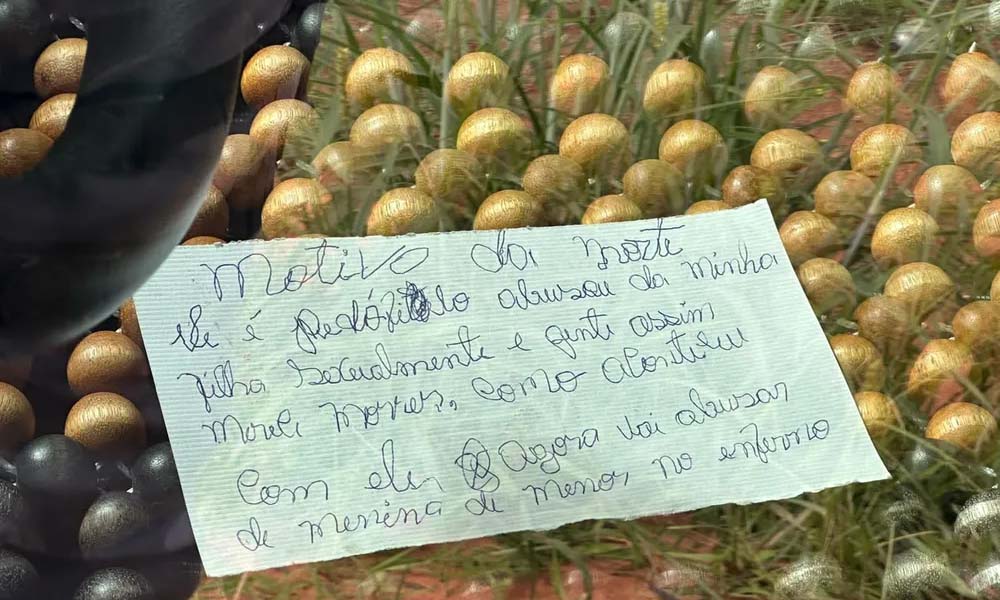 Motivo da morte
Ele é pedófilo abusou da minha
filha sexualmente e gente assim
Mereci morrer, como aconticeu
Com ele, agora vai abusar
de menina de menor no enferno